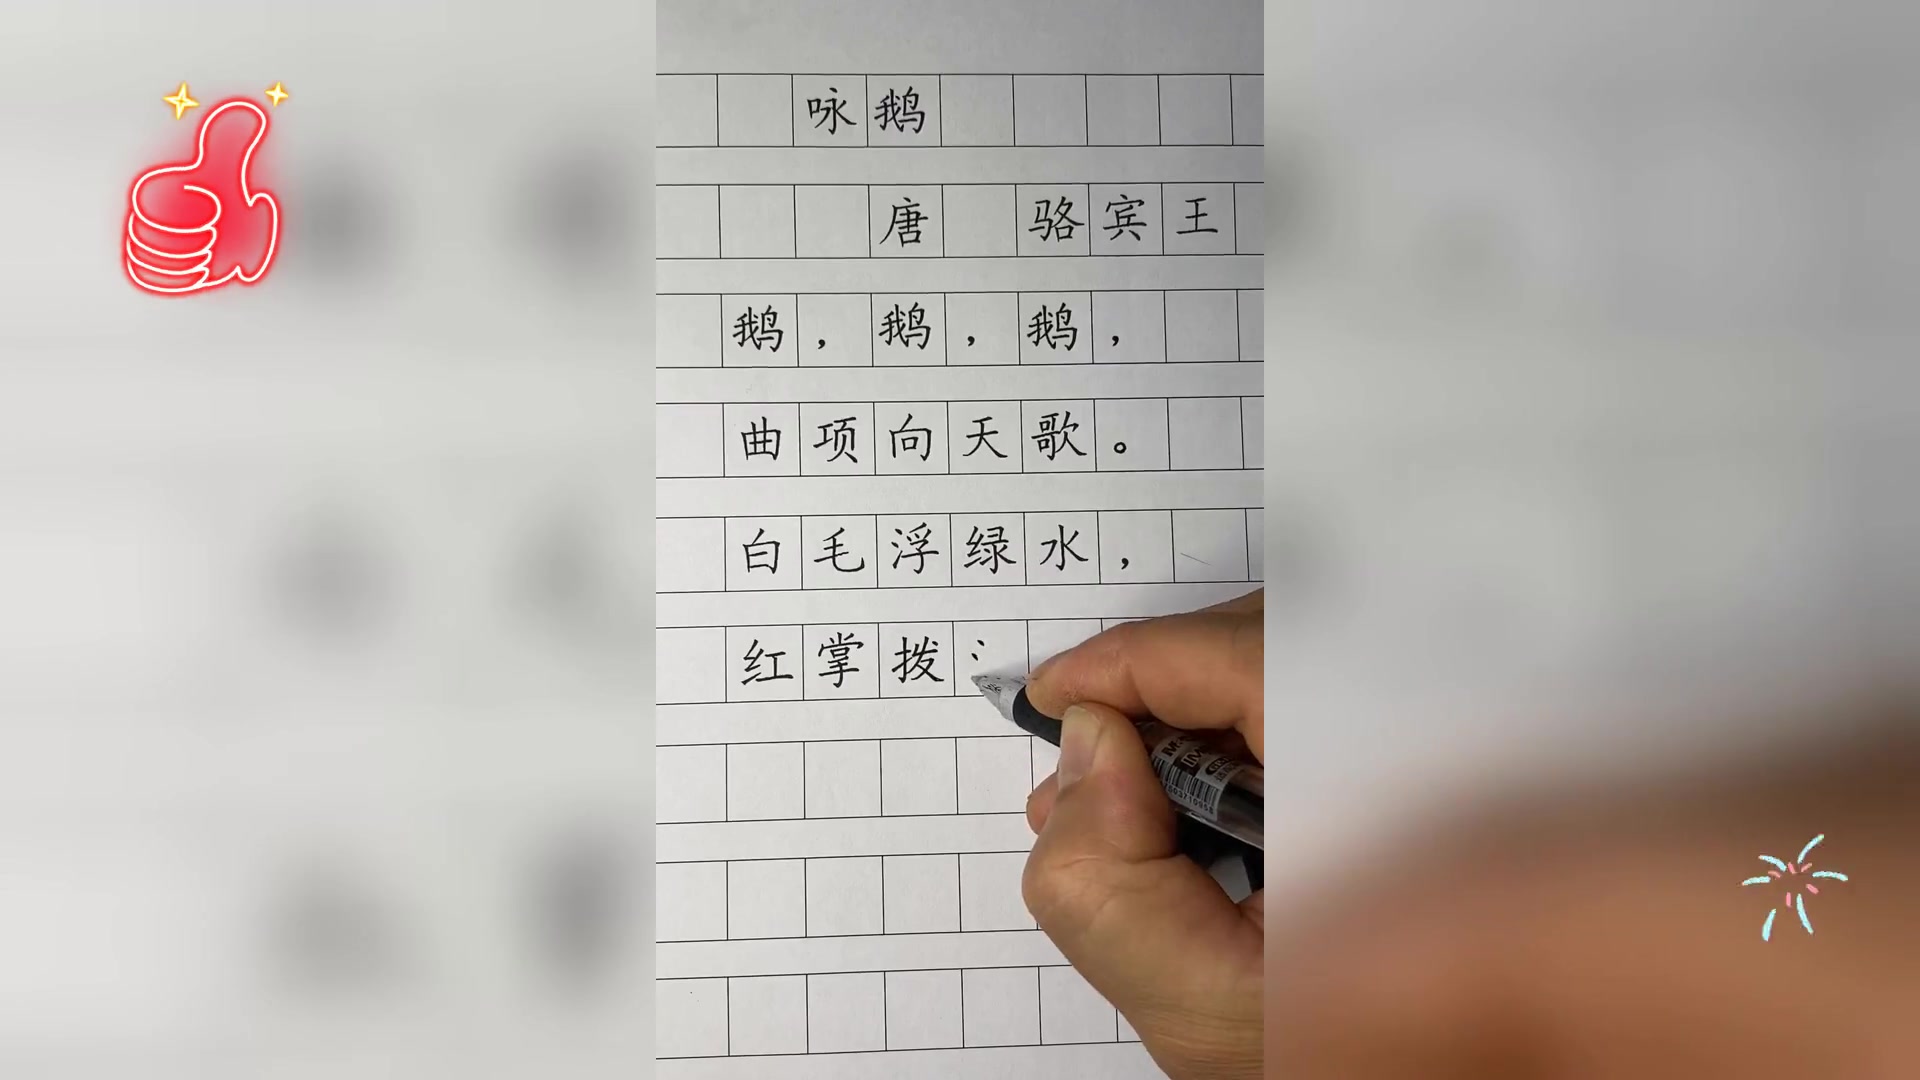 咏鹅
唐 骆宾王
鹅，鹅，鹅，
曲项向天歌。
白毛浮绿水，
红掌拨